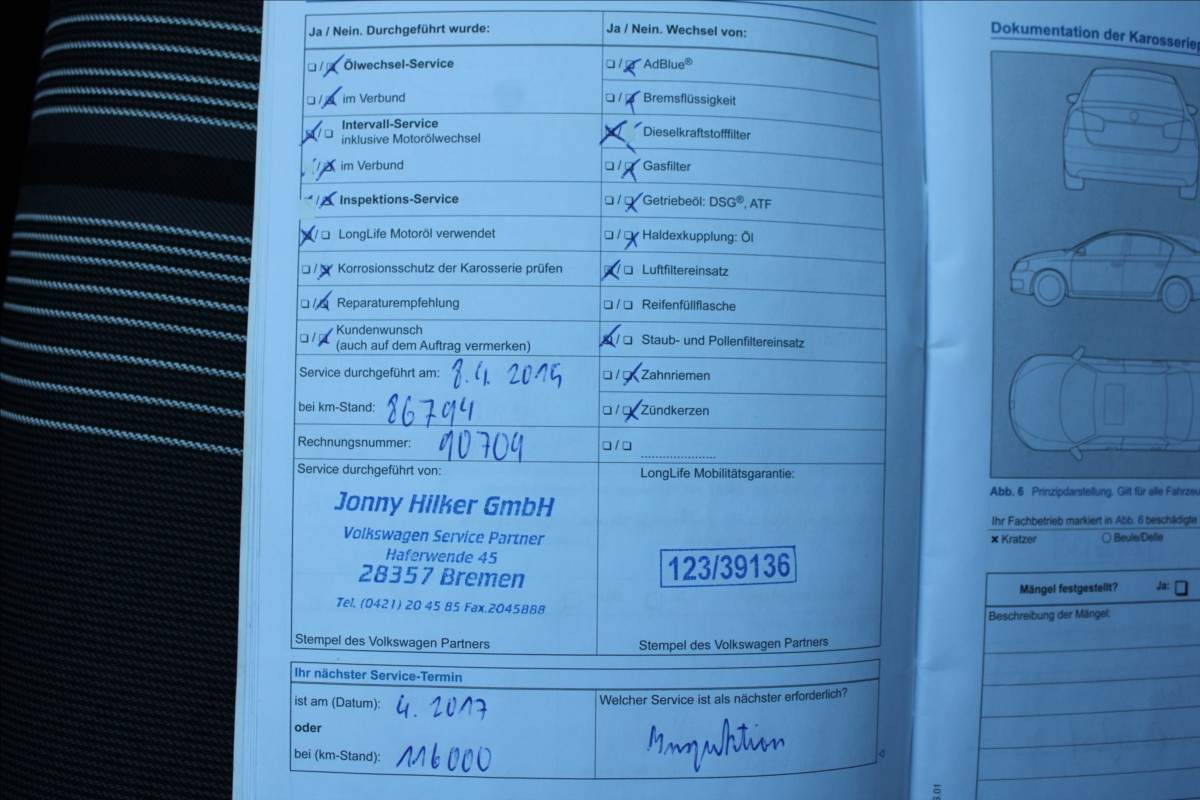 Ja / Nein. Durchgeführt wurde:
Ja / Nein. Wechsel von:
❏ / ❏ Ölwechsel-Service
❏ / ❏ AdBlue®
❏ / ❏ im Verbund
❏ / ❏ Bremsflüssigkeit
❏ / ❏ Intervall-Service
inklusive Motorölwechsel
❏ / ❏ Dieselkraftstofffilter
❏ / ❏ im Verbund
❏ / ❏ Gasfilter
❏ / ❏ Inspektions-Service
❏ / ❏ Getriebeöl: DSG®, ATF
❏ / ❏ LongLife Motoröl verwendet
❏ / ❏ Haldexkupplung: Öl
❏ / ❏ Korrosionsschutz der Karosserie prüfen
❏ / ❏ Luftfiltereinsatz
❏ / ❏ Reparaturempfehlung
❏ / ❏ Reifenfüllflasche
❏ / ❏ Kundenwunsch
(auch auf dem Auftrag vermerken)
❏ / ❏ Staub- und Pollenfiltereinsatz
Service durchgeführt am: 8.4. 2015
❏ / ❏ Zahnriemen
bei km-Stand: 86794
❏ / ❏ Zündkerzen
Rechnungsnummer: 90709
❏ / ❏ ....................
Service durchgeführt von:
LongLife Mobilitätsgarantie:
Jonny Hilker GmbH
Volkswagen Service Partner
Haferwende 45
28357 Bremen
Tel. (0421) 20 45 85 Fax.2045888
123/39136
Stempel des Volkswagen Partners
Stempel des Volkswagen Partners
Ihr nächster Service-Termin
ist am (Datum): 4. 2017
oder
bei (km-Stand): 116000
Welcher Service ist als nächster erforderlich?
Inspektion
Dokumentation der Karosserie
Abb. 6 Prinzipdarstellung. Gilt für alle Fahrzeu
Ihr Fachbetrieb markiert in Abb. 6 beschädigte
× Kratzer
○ Beule/Delle
Mängel festgestellt?
Ja: ❏
Beschreibung der Mängel: